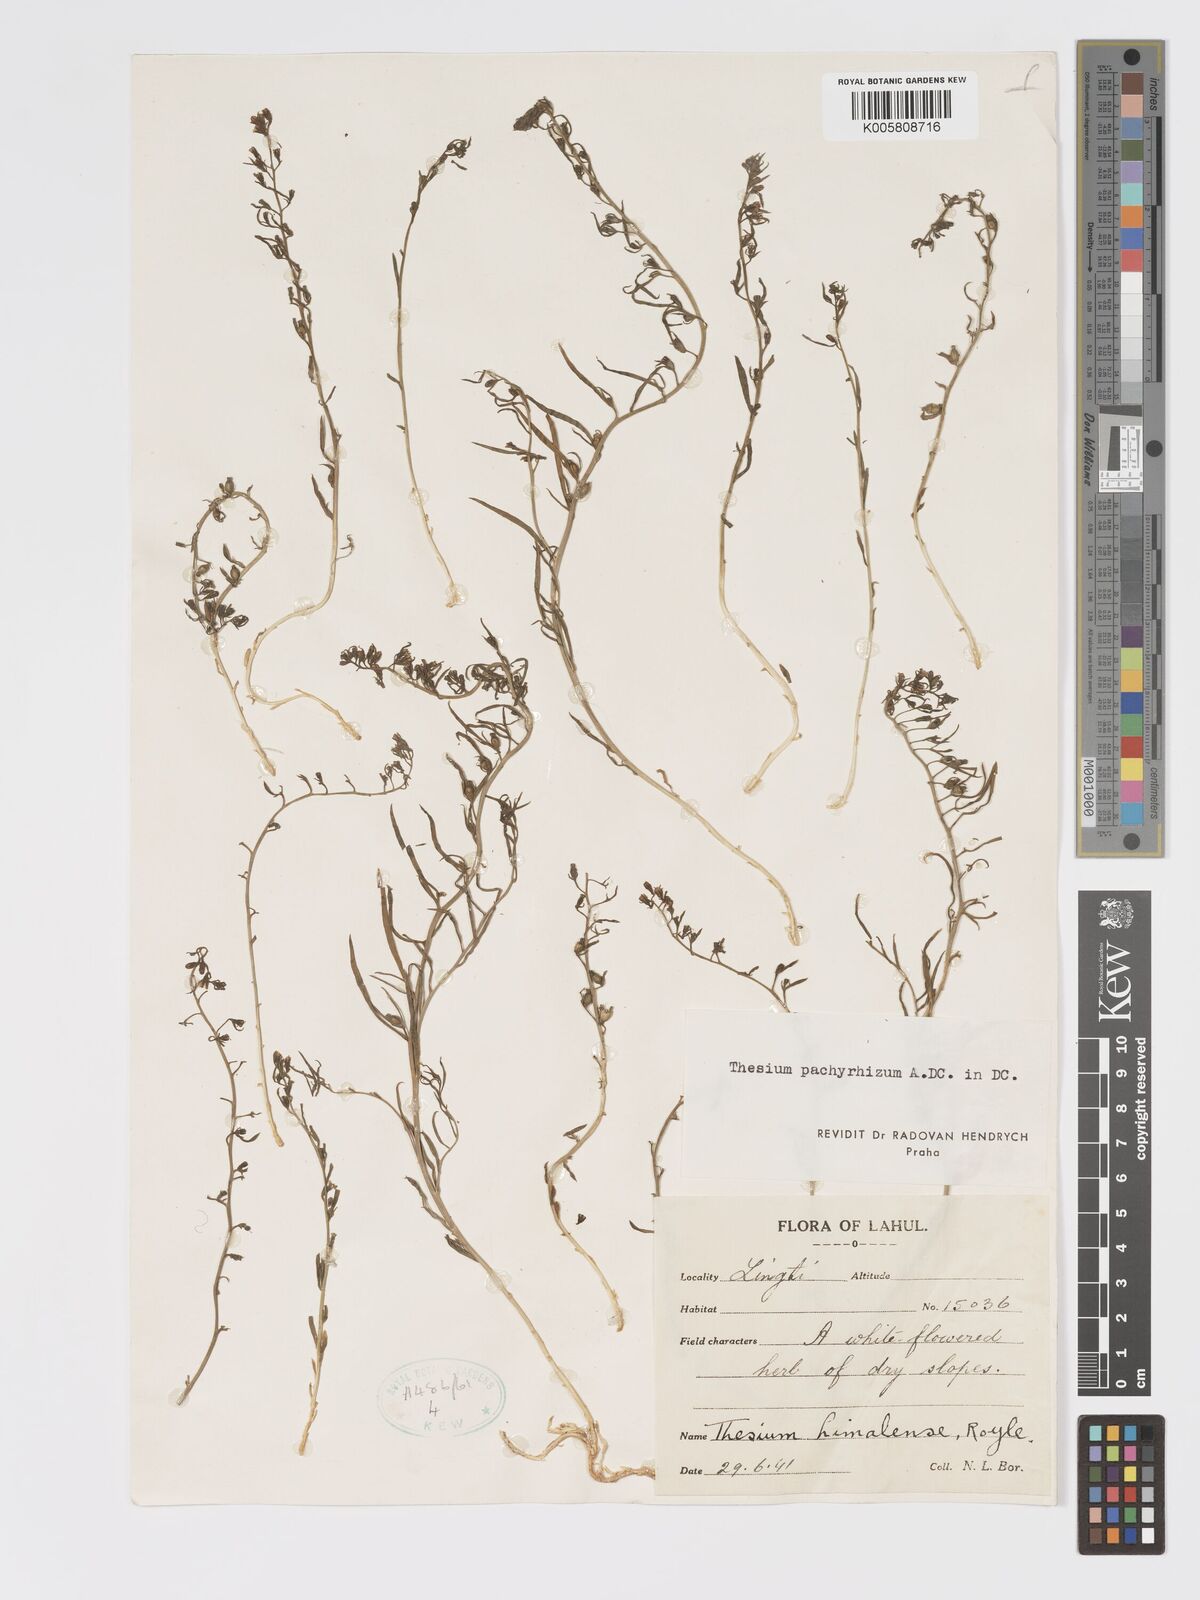 ROYAL BOTANIC GARDENS KEW
K005808716
Thesium pachyrhizum A.DC. in DC.
REVIDIT Dr RADOVAN HENDRYCH
Praha
FLORA OF LAHUL.
Locality Lingti Altitude
Habitat No. 15036
Field characters A white-flowered
herb of dry slopes.
Name Thesium himalense, Royle.
Date 29.6.41 Coll. N. L. Bor.
ROYAL BOTANIC GARDENS
A486/61
4
KEW
inches
Density
Don Williams
centimeters
M001000
Kew
Royal Botanic Gardens
copyright reserved
0 1 2 3 4 5 6 7 8 9 10
cm